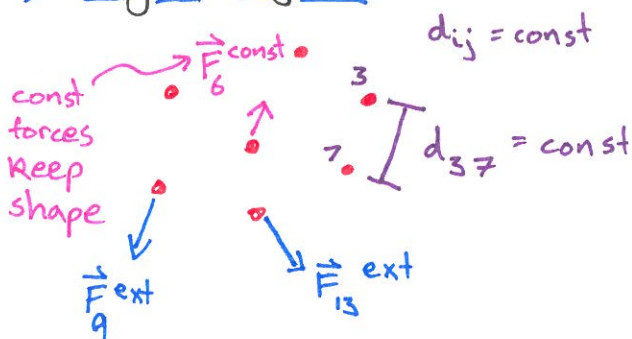 d_ij = const
F⃗_6^const
3
const
forces
keep
shape
7
d_37 = const
F⃗_9^ext
F⃗_13^ext